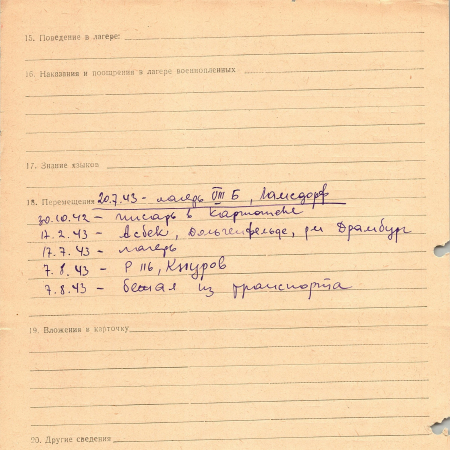 15. Поведение в лагере:
16. Наказания и поощрения в лагере военнопленных
17. Знание языков
18. Перемещения 20.7.43 - лагерь VIII Б, Ламсдорф
30.10.42 - писарь в картотеке
17.2.43 - Асбек, Дольгенфельде, р-н Драмбург
17.7.43 - лагерь
7.8.43 - Р 116, Кнуров
7.8.43 - бежал из транспорта
19. Вложения в карточку
20. Другие сведения